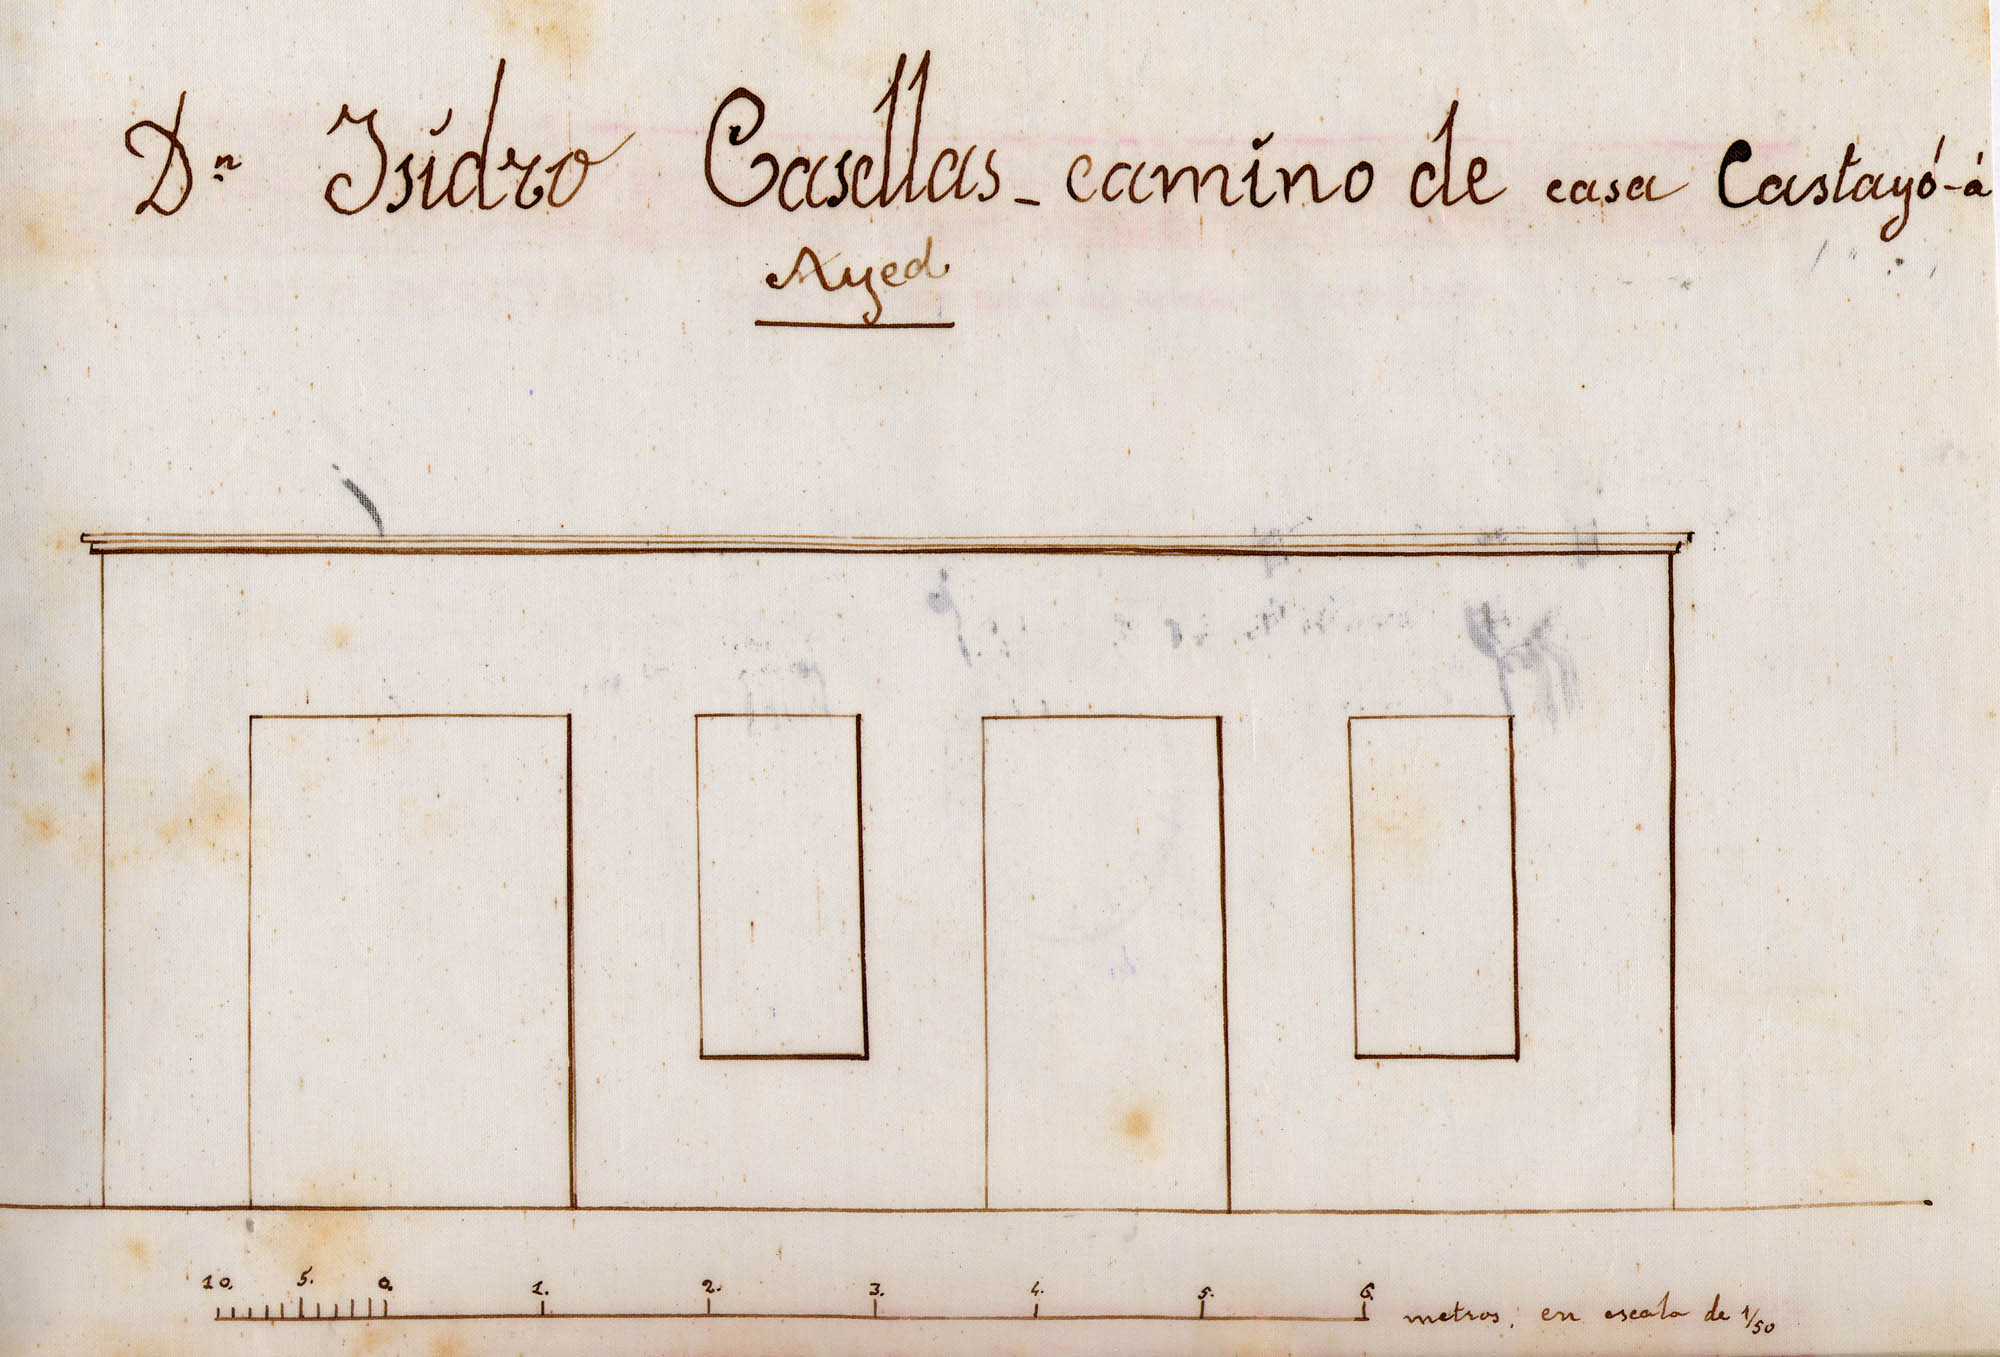 Dn Isidro Casellas - camino de casa Castayó - á
Ayed
10. 5. 0. 1. 2. 3. 4. 5. 6. metros: en escala de 1/50